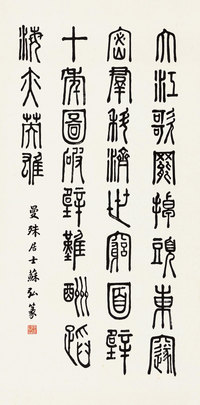 大江歌罷掉頭東邃
密羣科濟世窮面壁
十年圖破壁難酬蹈
海亦英雄
曼殊居士蘇弘篆